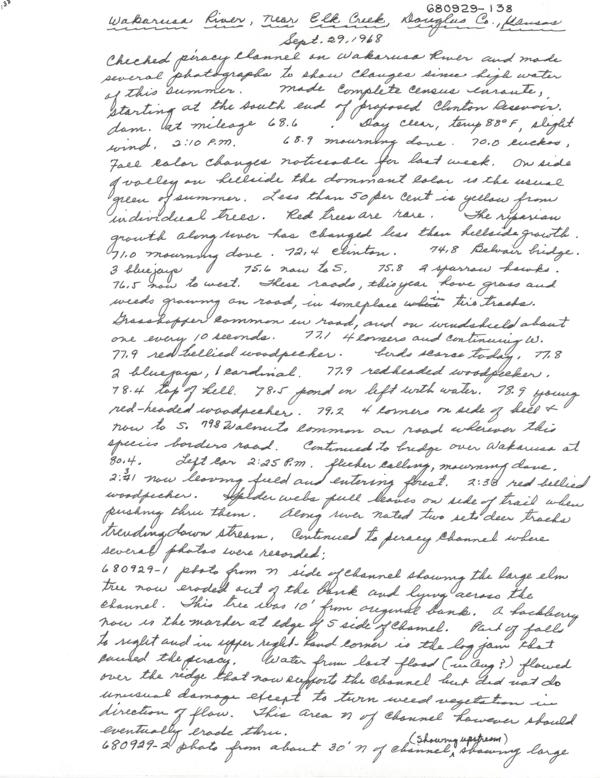 680929-138
Wakarusa River, near Elk Creek, Douglas Co., Kansas
Sept. 29, 1968
Checked piracy channel on Wakarusa River and made
several photographs to show changes since high water
of this summer. Made complete census enroute,
starting at the south end of proposed Clinton Reservoir
dam. at mileage 68.6. Day clear, temp 88°F, slight
wind. 2:10 P.M. 68.9 mourning dove. 70.0 cuckoo,
Fall color changes noticeable for last week. On side
of valley on hillside the dominant color is the usual
green of summer. Less than 50 per cent is yellow from
individual trees. Red trees are rare. The riparian
growth along river has changed less than hillside growth.
71.0 mourning dove. 72.4 Clinton. 74.8 Belvoir bridge.
3 bluejays 75.6 now to S. 75.8 2 sparrow hawks.
76.5 now to west. These roads, this year have grass and
weeds growing on road, in some place in tire tracks.
Grasshopper common in road, and on windshield about
one every 10 seconds. 77.1 4 corners and continuing W.
77.9 red-bellied woodpecker. birds scarse today. 77.8
2 bluejays, 1 cardinal. 77.9 redheaded woodpecker.
78.4 top of hill. 78.5 pond on left with water. 78.9 young
red-headed woodpecker. 79.2 4 corners on side of hill +
now to S. 79.8 Walnuts common on road wherever this
species borders road. Continued to bridge over Wakarusa at
80.4. Left car 2:25 P.M. flicker calling, mourning dove.
2:31 now leaving field and entering forest. 2:38 red bellied
woodpecker. Spider webs pull leaves on side of trail when
pushing thru them. Along river noted two sets deer tracks
trending down stream. Continued to piracy channel where
several photos were recorded:
680929-1 photo from N side of channel showing the large elm
tree now eroded out of the bank and lying across the
channel. This tree was 10' from original bank. A hackberry
now is the marker at edge of S side of channel. Part of falls
to right and in upper right-hand corner is the log jam that
caused the piracy. Water from last flood (in Aug?) flowed
over the ridge that now supports the channel but did not do
unusual damage except to turn weed vegetation in
direction of flow. This area N of channel however should
eventually erode thru.
(showing upstream)
680929-2 photo from about 30' N of channel, showing large